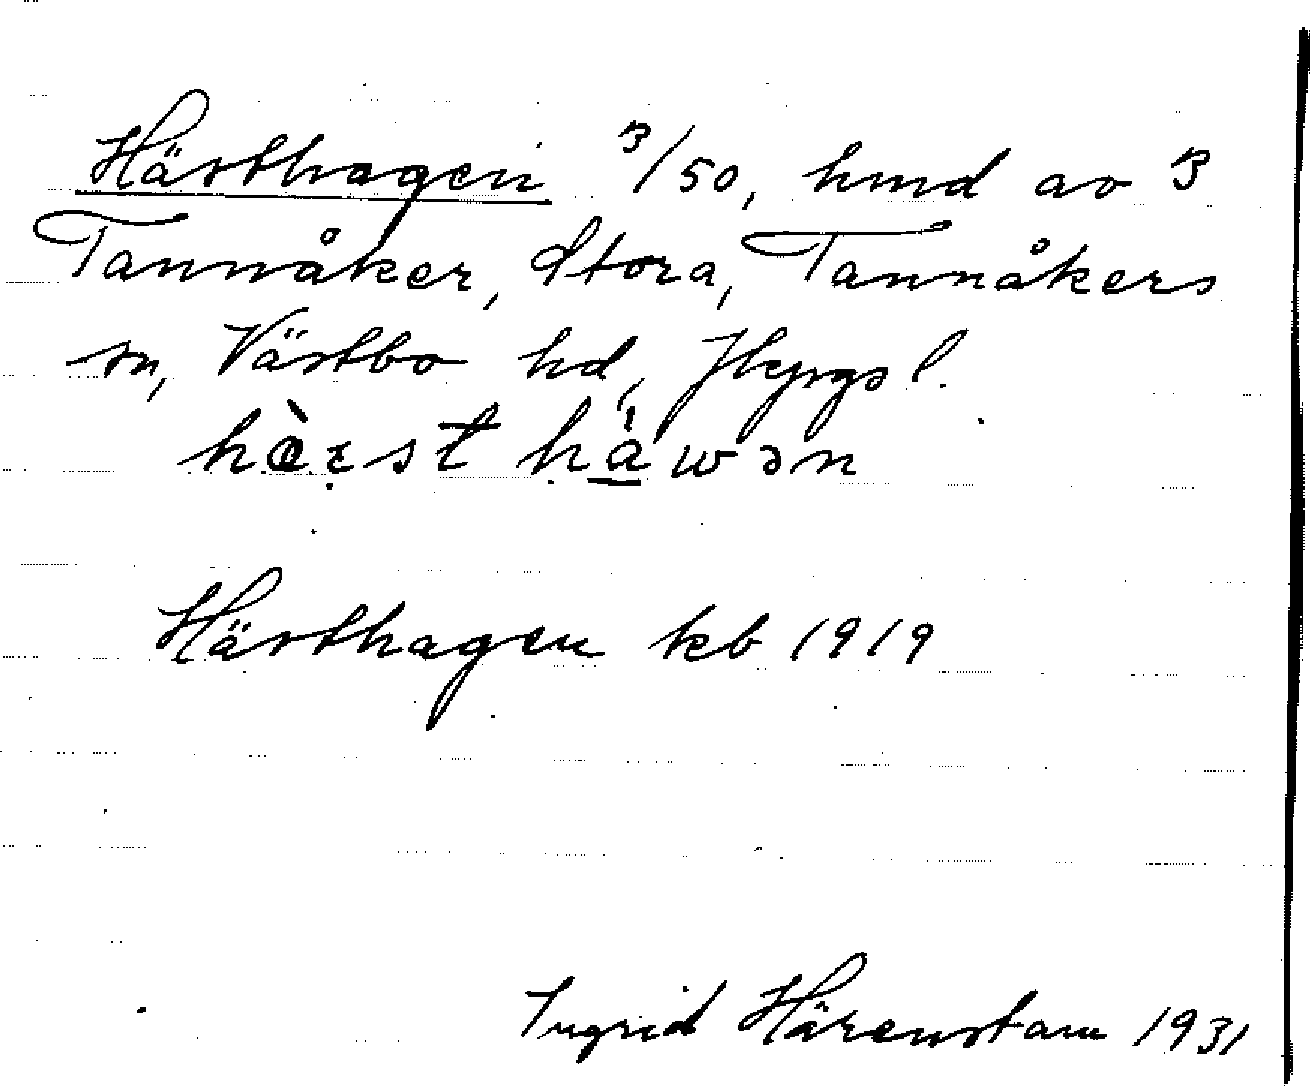 Hästhagen 3/50, hmd av 3
Tannåker, Stora, Tannåkers
sn, Västbo hd, Jkpgs l.
hὰɛst hàwən
Hästhagen kb 1919
Ingrid Härenstam 1931